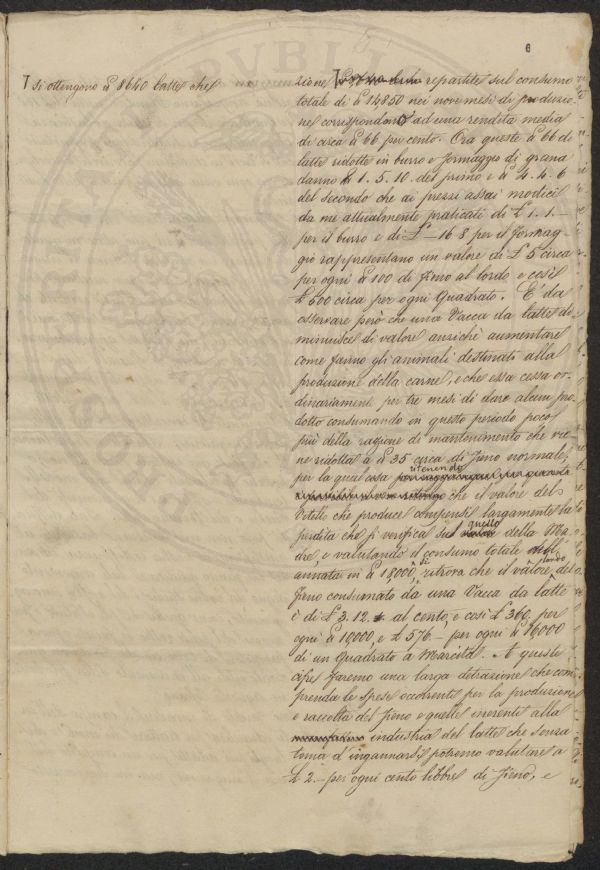 6
T si ottengono ℔ 8640 latte che
zione T repartite sul consumo
totale di ℔ 14850 nei nove mesi di produzio
ne corrispondono ad una rendita media
di circa ℔ 66 per cento. Ora queste ℔ 66 di
latte ridotte in burro e formaggio di grana
danno ℔ 1. 5. 10. del primo e ℔ 4. 4. 6
del secondo che ai prezzi assai modici
da me attualmente praticati di £ 1. 1. —
per il burro e di £ — 16 8 per il formag-
gio rappresentano un valore di £ 5 circa
per ogni ℔ 100 di fieno al lordo e così
£ 500 circa per ogni Quadrato. E' da
osservare però che una Vacca da latte di
minuisce di valore anzichè aumentare
come fanno gli animali destinati alla
produzione della carne, e che essa cessa or-
dinariamente per tre mesi di dare alcun pro
dotto consumando in questo periodo poco
più della ragione di mantenimento che vie
ne ridotta a ℔ 35 circa di fieno normale,
per la qual cosa ritenendo
che il valore del
Vitello che produce compensi largamente la
perdita che si verifica su quello della Ma
dre, e valutando il consumo totale dell'
annata in ℔ 18,000, si ritrova che il valore lordo del
fieno consumato da una Vacca da latte
è di £ 3. 12. al cento, e così £ 360. per
ogni ℔ 10000, e £ 576. — per ogni ℔ 16000
di un Quadrato a Marcita. A queste
cifre faremo una larga detrazione che com
prenda le spese occorrenti per la produzione
e raccolta del fieno e quelle inerenti alla
industria del latte che senza
tema d'ingannarsi potremo valutare a
£ 2 — per ogni cento libbre di fieno, e